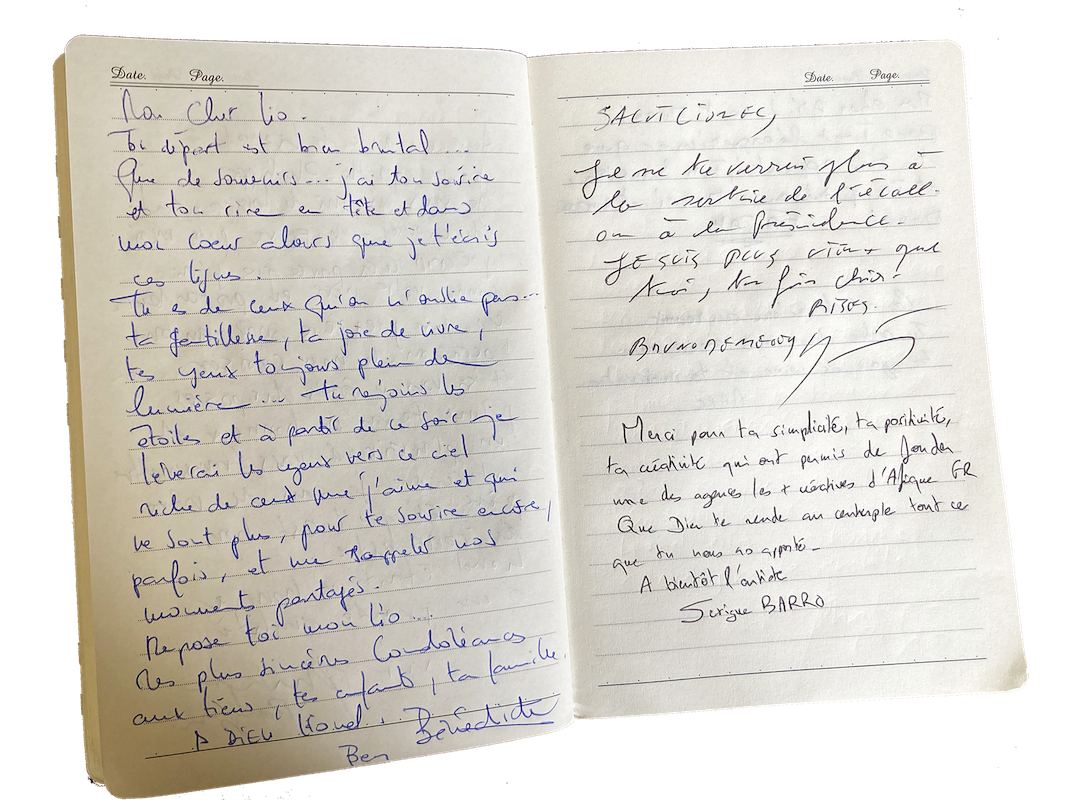 Date. Page.
Mon Cher Lio.
Ton départ est bien brutal ...
Que de souvenirs ... j'ai ton sourire
et ton rire en tête et dans
mon coeur alors que je t'écris
ces lignes.
Tu es de ceux qu'on n'oublie pas ...
ta gentillesse, ta joie de vivre,
tes yeux toujours plein de
lumière ... tu rejoins les
étoiles et à partir de ce soir je
lèverai les yeux vers ce ciel
riche de ceux que j'aime et qui
ne sont plus, pour te sourire encore,
parfois, et me rappeler nos
moments partagés.
Repose toi mon Lio ...
Mes plus sincères Condoléances
aux tiens, tes enfants, ta famille.
A DIEU Lionel,
Ben Bénédicte
Date. Page.
SALUT LIONEL,
Je ne te verrai plus à
la sortie de l'école
ou à la présidence.
JE SUIS PLUS vieux que
toi,
BISES.
BRUNO
Merci pour ta simplicité, ta positivité,
ta créativité qui ont permis de fonder
une des agences les + créatives d'Afrique FR
Que Dieu te rende au centuple tout ce
que tu nous as apporté_
A bientôt l'artiste
Serigne BARRO